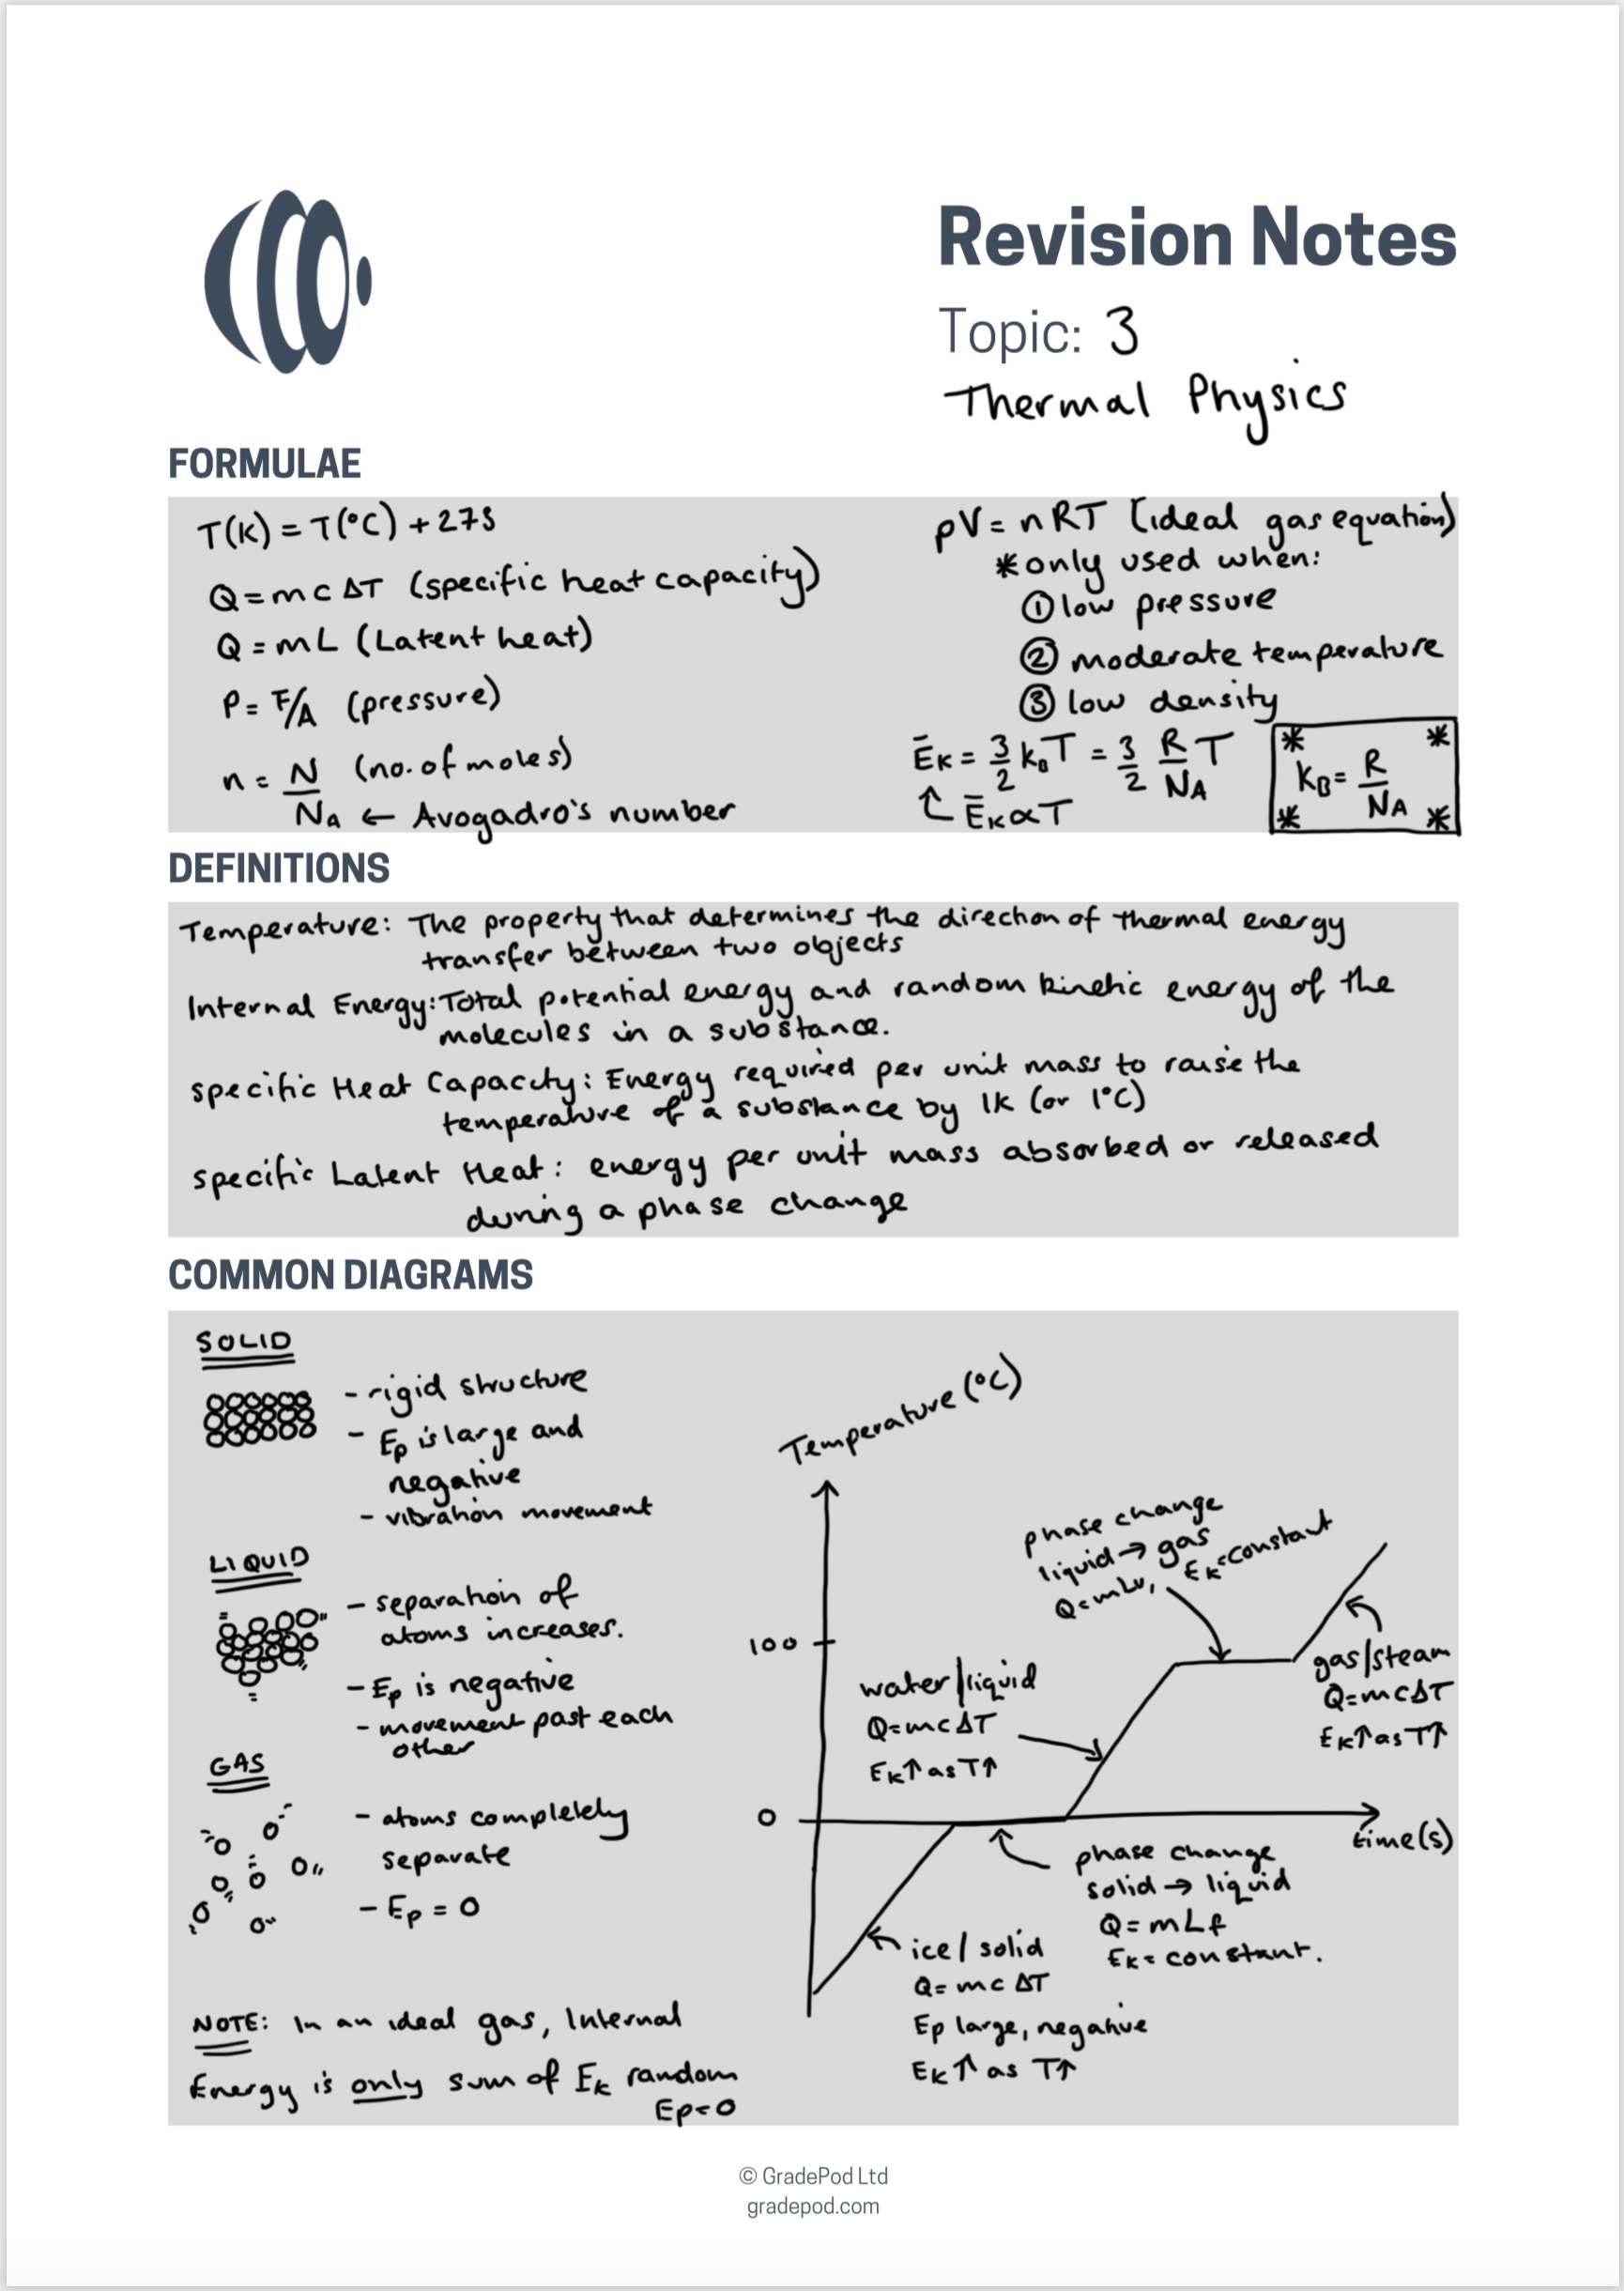 Revision Notes
Topic: 3
Thermal Physics
FORMULAE
T(K) = T(°C) + 273
Q = mcΔT (specific heat capacity)
Q = mL (Latent heat)
P = F/A (pressure)
n = N/NA (no. of moles)
← Avogadro's number
pV = nRT (ideal gas equation)
* only used when:
① low pressure
② moderate temperature
③ low density
ĒK = 3/2 kBT = 3/2 R/NA T
ĒK ∝ T
* *
kB = R/NA
* *
DEFINITIONS
Temperature: The property that determines the direction of thermal energy
transfer between two objects
Internal Energy: Total potential energy and random kinetic energy of the
molecules in a substance.
specific Heat Capacity: Energy required per unit mass to raise the
temperature of a substance by 1K (or 1°C)
specific Latent Heat: energy per unit mass absorbed or released
during a phase change
COMMON DIAGRAMS
SOLID
- rigid structure
- Ep is large and
negative
- vibration movement
LIQUID
- separation of
atoms increases.
- Ep is negative
- movement past each
other
GAS
- atoms completely
separate
- Ep = 0
NOTE: In an ideal gas, Internal
Energy is only sum of EK random
Ep=0
Temperature (°C)
100
0
time(s)
phase change
liquid → gas
Q=mLv, EK=constant
water/liquid
Q=mcΔT
EK↑ as T↑
gas/steam
Q=mcΔT
EK↑ as T↑
phase change
solid → liquid
Q=mLf
EK= constant.
ice/solid
Q=mcΔT
Ep large, negative
EK↑ as T↑
© GradePod Ltd
gradepod.com